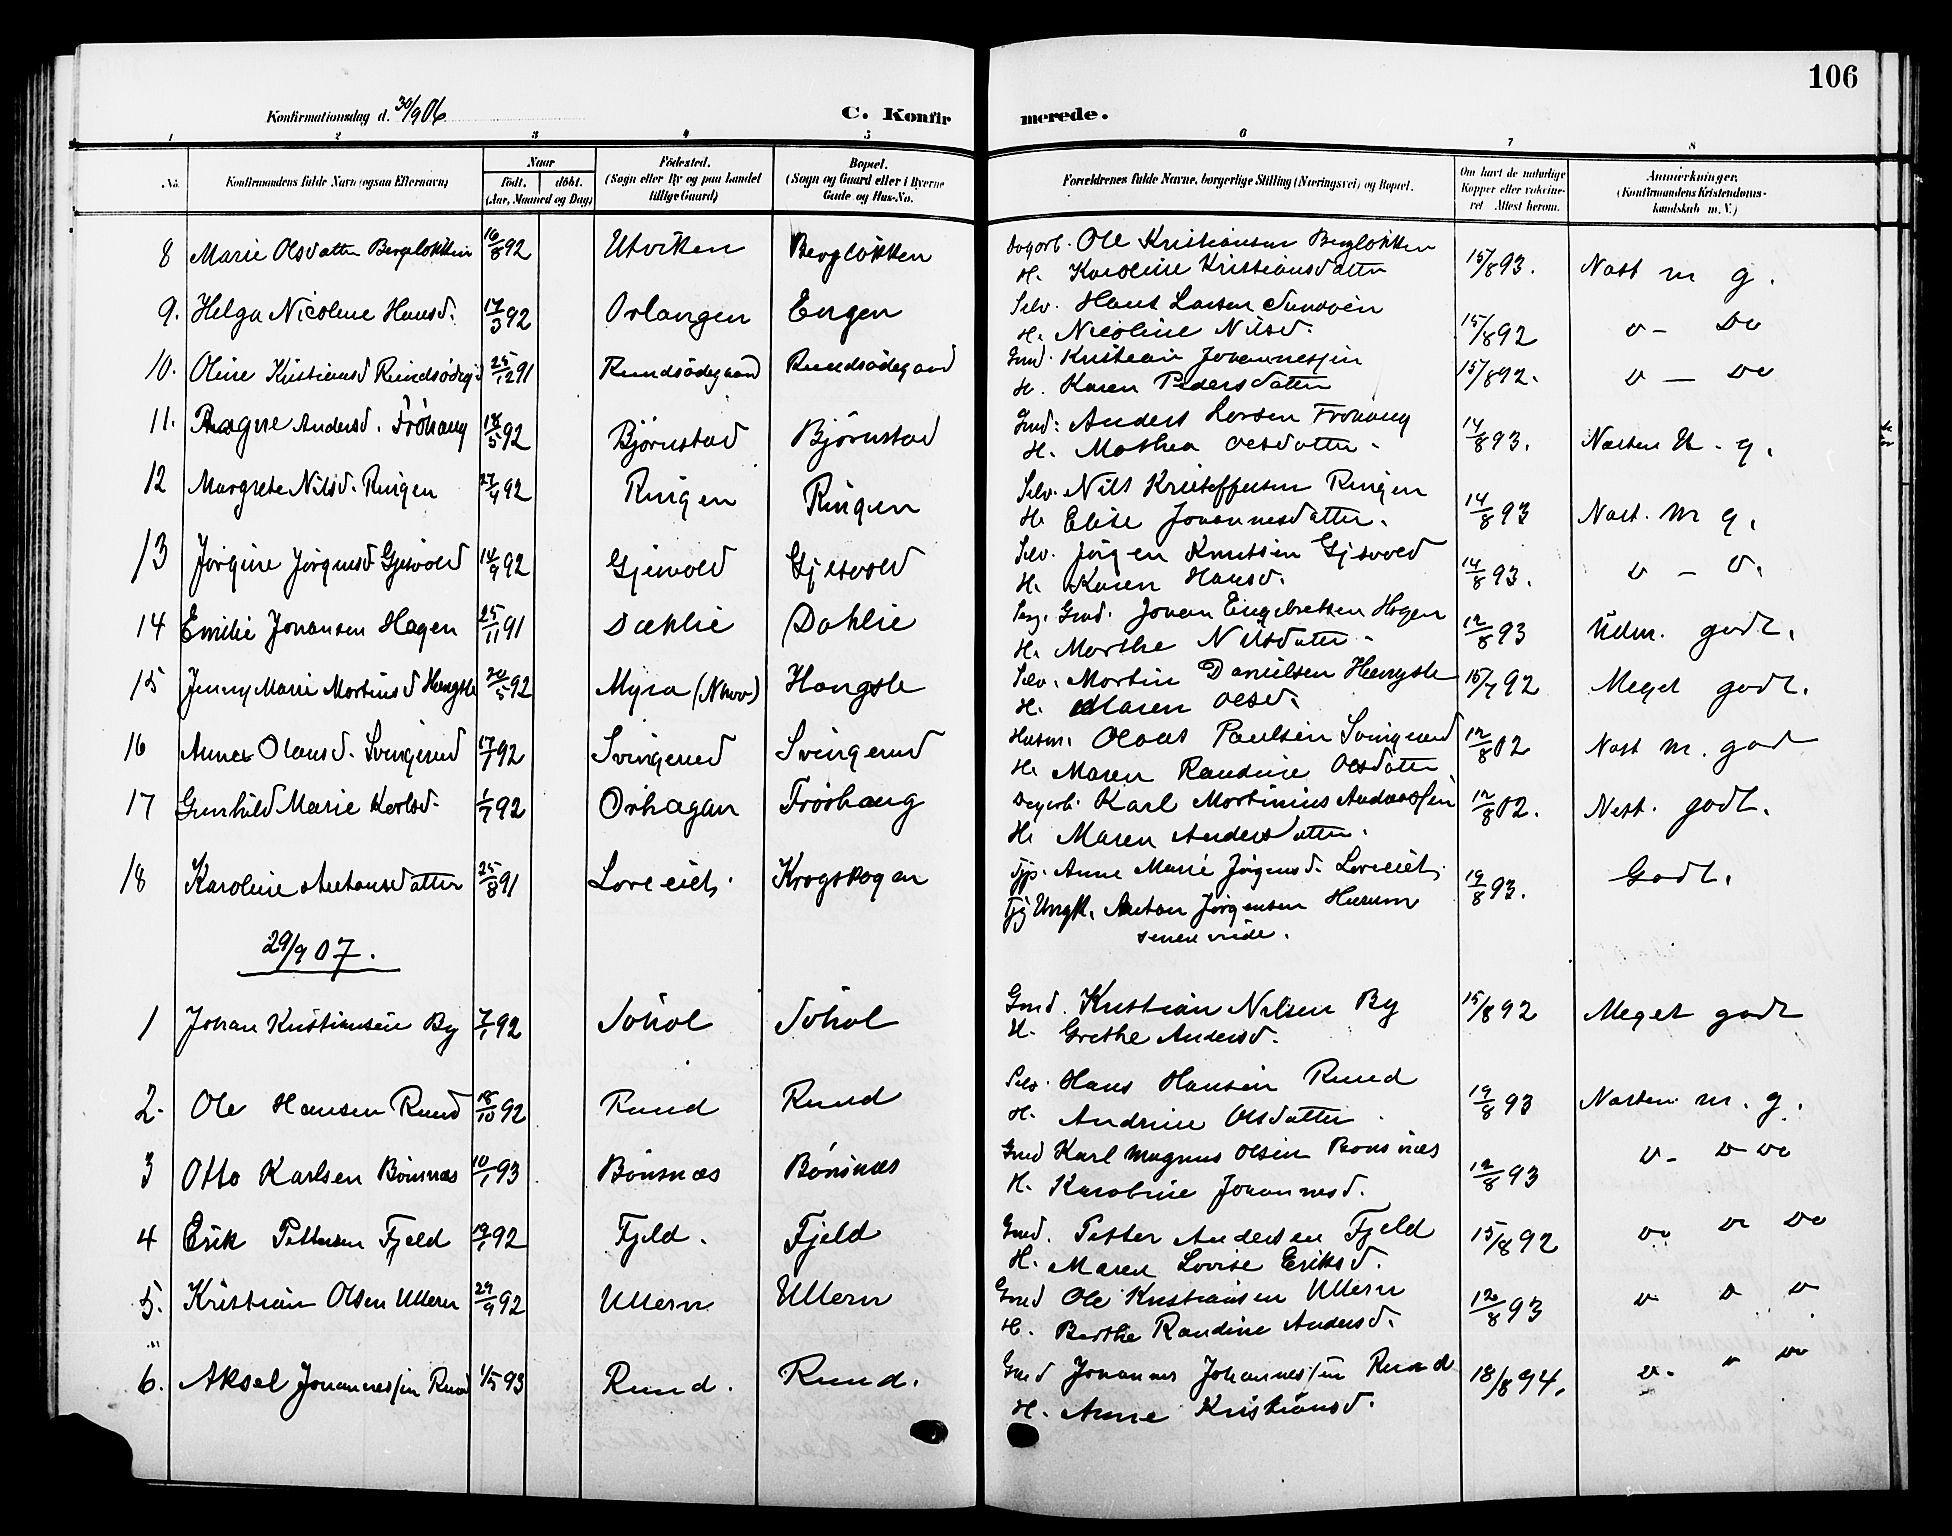 106
Konfirmationsdag d. 30/9 06
C. Konfirmerede.
1 2 3 4 5 6 7 8
No. Konfirmandens fulde Navn (ogsaa Efternavn) Naar født. døbt. (Aar, Maaned og Dag) Fødested. (Sogn eller By og paa Landet tillige Gaard) Bopæl. (Sogn og Gaard eller i Byerne Gade og Hus-No. Forældrenes fulde Navne, borgerlige Stilling (Næringsvei) og Bopæl. Om havt de naturlige Kopper eller vakcineret Attest herom. Anmærkninger, (Konfirmandens Kristendomskundskab m. V.)
8 Marie Olsdatter Bergløkken 16/8 92 Utviken Bergløkken Dagarb. Ole Kristiansen Bergløkken 15/8 93. Næst m g.
H. Karoline Kristiansdatter
9. Helga Nicoline Hansd. 17/3 92 Orlangen Engen Selv. Hans Larsen Sundven 15/8 92 v - Do
H. Nicoline Nilsd.
10. Oline Kristiansd Rundsødeg'd 25/12 91 Rundsødegaard Rundsødegaard Gmd. Kristian Johannessen 15/8 92. v - Do
H. Karen Pedersdatter
11. Ragne Andersd. Frøhaug 18/5 92 Bjørnstad Bjørnstad Gmd. Anders Larsen Frøhaug 14/8 93. Næsten M. g.
H. Mathea Olsdatter.
12 Margrete Nilsd. Ringen 27/4 92 Ringen Ringen Selv. Nils Kristoffersen Ringen 14/8 93 Næst. m g.
H. Elise Johannesdatter.
13 Jørgine Jørgensd Gjesvold 14/9 92 Gjesvold Gjesvold Selv. Jørgen Knutsen Gjesvold 14/8 93. v - v.
H. Karen Hansd.
14 Emilie Johansen Hagen 25/11 91 Dæhlie Dahlie Gmd. Johan Engebretsen Hagen 12/8 93 Udm. godt.
H. Marthe Nilsdatter.
15 Jenny Marie Martinsd Hengsle 20/5 92 Myra Hangsle Selv. Martin Danielsen Hengsle 15/7 92 Meget godt.
H. Maren Olsd.
16 Anna Olausd. Svingerud 17/7 92 Svingerud Svingerud Husm. Olaus Paulsen Svingerud 12/8 02 Næst m. god
H. Maren Randine Olsdatter
17 Gunhild Marie Karlsd. 1/7 92 Orhagan Frøshaug Dagarb. Karl Martinius Anderssen 12/8 02. Nest. godt.
H. Maren Andersdatter.
18 Karoline Antonsdatter 25/8 91 Loreeiet. Krogskogen Tjp. Anne Marie Jørgensd. Loreeiet, 19/8 93. Godt.
Ungk. Anton Jørgensen Hurum
29/9 07.
1 Johan Kristiansen By 7/1 92 Søhol Søhol Gmd. Kristian Nilsen By 15/8 92 Meget godt
H. Grethe Andersd.
2. Ole Hansen Rund 18/10 92 Rund Rund Selv. Hans Hansen Rund 19/8 93 Næsten m. g.
H. Andrine Olsdatter
3 Otto Karlsen Bønsnæs 10/1 93 Bønsnæs Bønsnæs Gmd Karl Magnus Olsen Bønsnæs 12/8 93 v - v do
H. Karoline Johannesd.
4 Erik Pettersen Fjeld 19/1 92 Fjeld. Fjeld Gmd. Petter Andersen Fjeld 15/8 92 do v Do
H. Maren Lovise Eriksd.
5. Kristian Olsen Ullern 29/9 92 Ullern Ullern Gmd Ole Kristiansen Ullern 12/8 93 v v v
H. Berthe Randine Andersd.
6. Aksel Johannessen Rund 1/5 93 Rund. Rund. Gmd Johannes Johannessen Rund 18/8 94. v. v do
H. Anne Kristiansd.